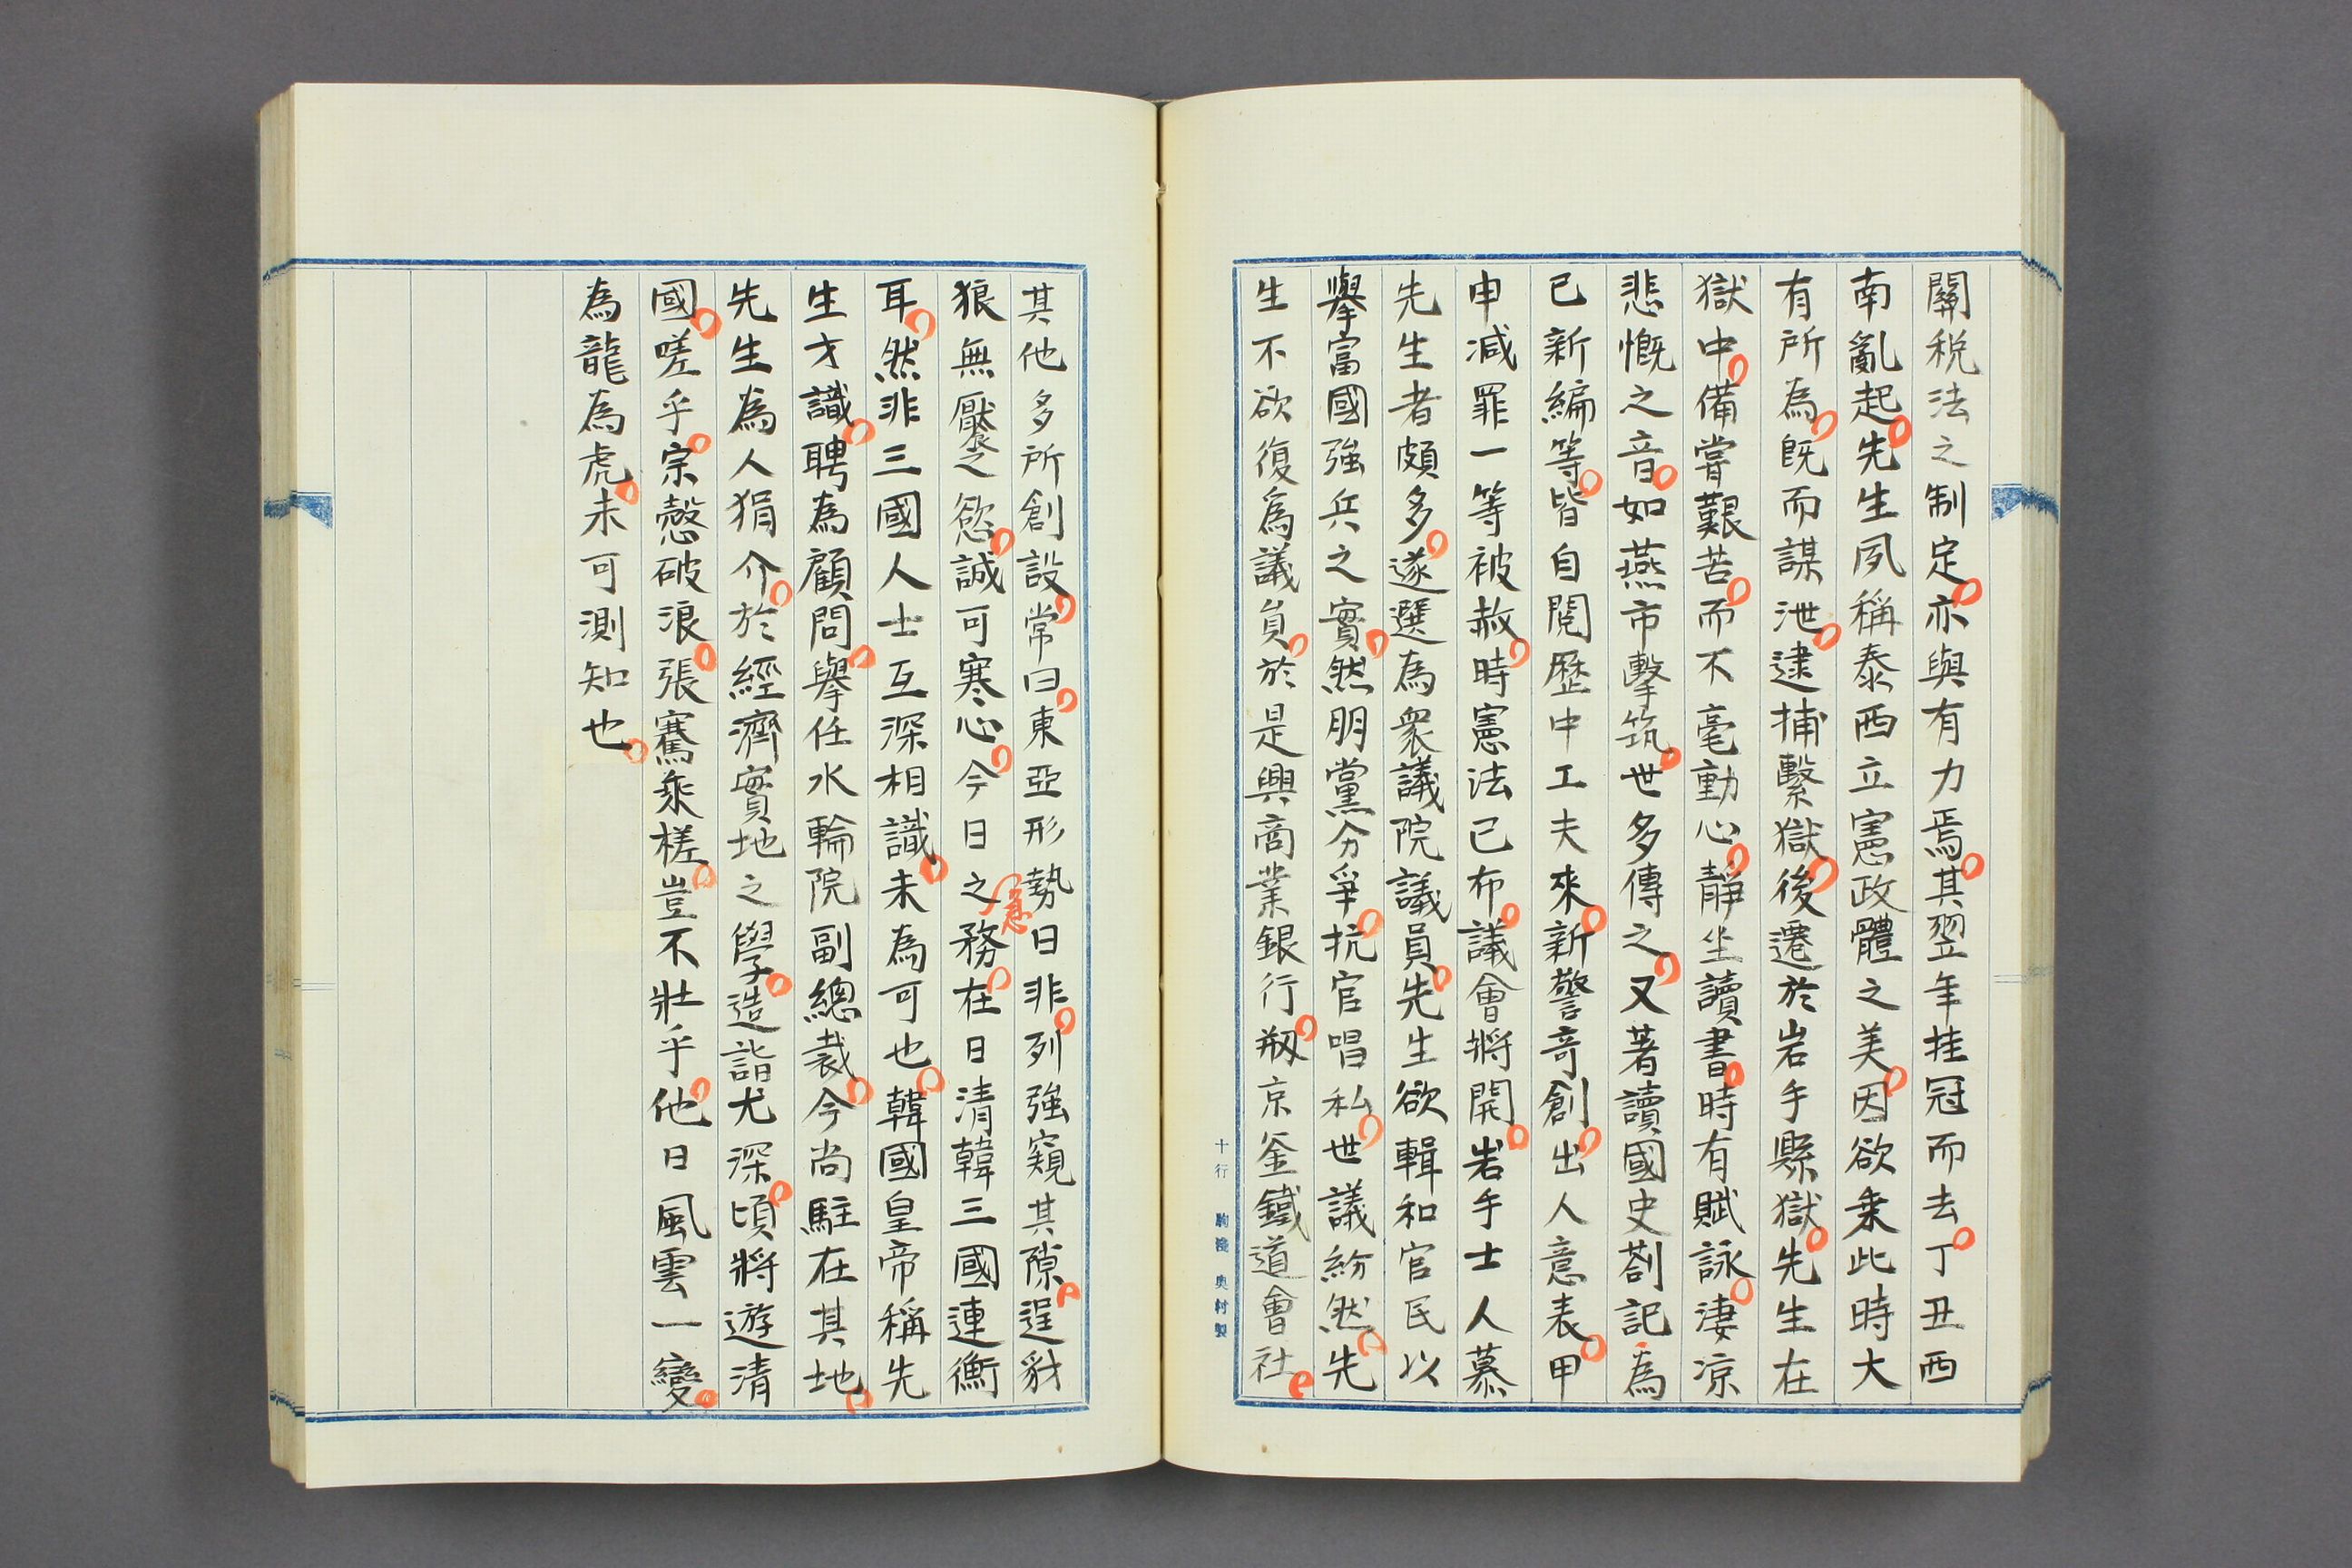 關税法之制定亦與有力焉其翌年挂冠而去丁丑西
南亂起先生夙稱泰西立憲政體之美因欲乗此時大
有所為既而謀泄逮捕繫獄後遷於岩手縣獄先生在
獄中備嘗艱苦而不毫動心靜坐讀書時有賦詠淒凉
悲慨之音如燕市擊筑世多傳之又著讀國史劄記為
已新編等皆自閲歴中工夫來新警奇創出人意表甲
申減罪一等被赦時憲法已布議會將開岩手士人慕
先生者頗多遂選為衆議院議員先生欲輯和官民以
擧富國強兵之實然朋黨分爭抗官唱私世議紛然先
生不欲復為議員於是興商業銀行剏京釜鐵道會社
十行 駒濩 奥村製
其他多所創設常曰東亞形勢日非列強窺其隙逞豺
狼無饜之慾誠可寒心今日之急務在日清韓三國連衡
耳然非三國人士互深相識未為可也韓國皇帝稱先
生才識聘為顧問擧任水輪院副總裁今尚駐在其地
先生為人狷介於經濟實地之學造詣尤深頃將遊清
國嗟乎宗慤破浪張騫乘槎豈不壯乎他日風雲一變
為龍為虎未可測知也